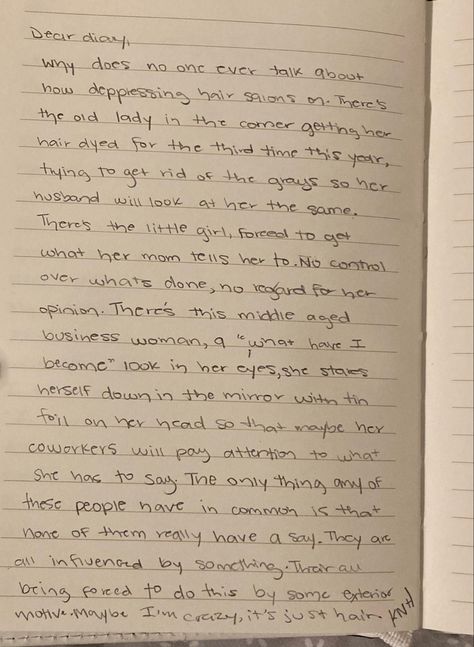 Dear diary,
Why does no one ever talk about
how deppressing hair salons on. There's
the old lady in the corner getting her
hair dyed for the third time this year,
trying to get rid of the grays so her
husband will look at her the same.
There's the little girl, forced to get
what her mom tells her to. No control
over whats done, no regard for her
opinion. There's this middle aged
business woman, a "what have I
become" look in her eyes, she stares
herself down in the mirror with tin
foil on her head so that maybe her
coworkers will pay attention to what
she has to say. The only thing any of
these people have in common is that
none of them really have a say. They are
all influenced by something. Their all
being forced to do this by some exterior
motive. Maybe I'm crazy, it's just hair.